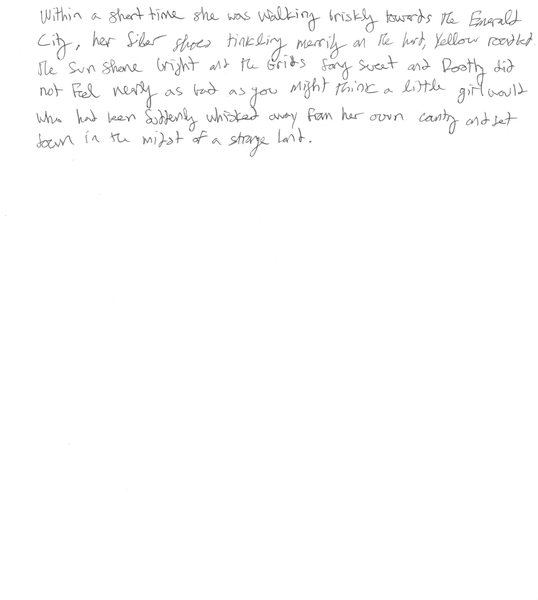 Within a short time she was walking briskly towards the Emerald
City, her Silver shoes tinkling merrily on the hard, Yellow roadbed.
The sun shone bright and the birds sang sweet and Dorothy did
not feel nearly as bad as you might think a little girl would
who had been suddenly whisked away from her own country and set
down in the midst of a strange land.